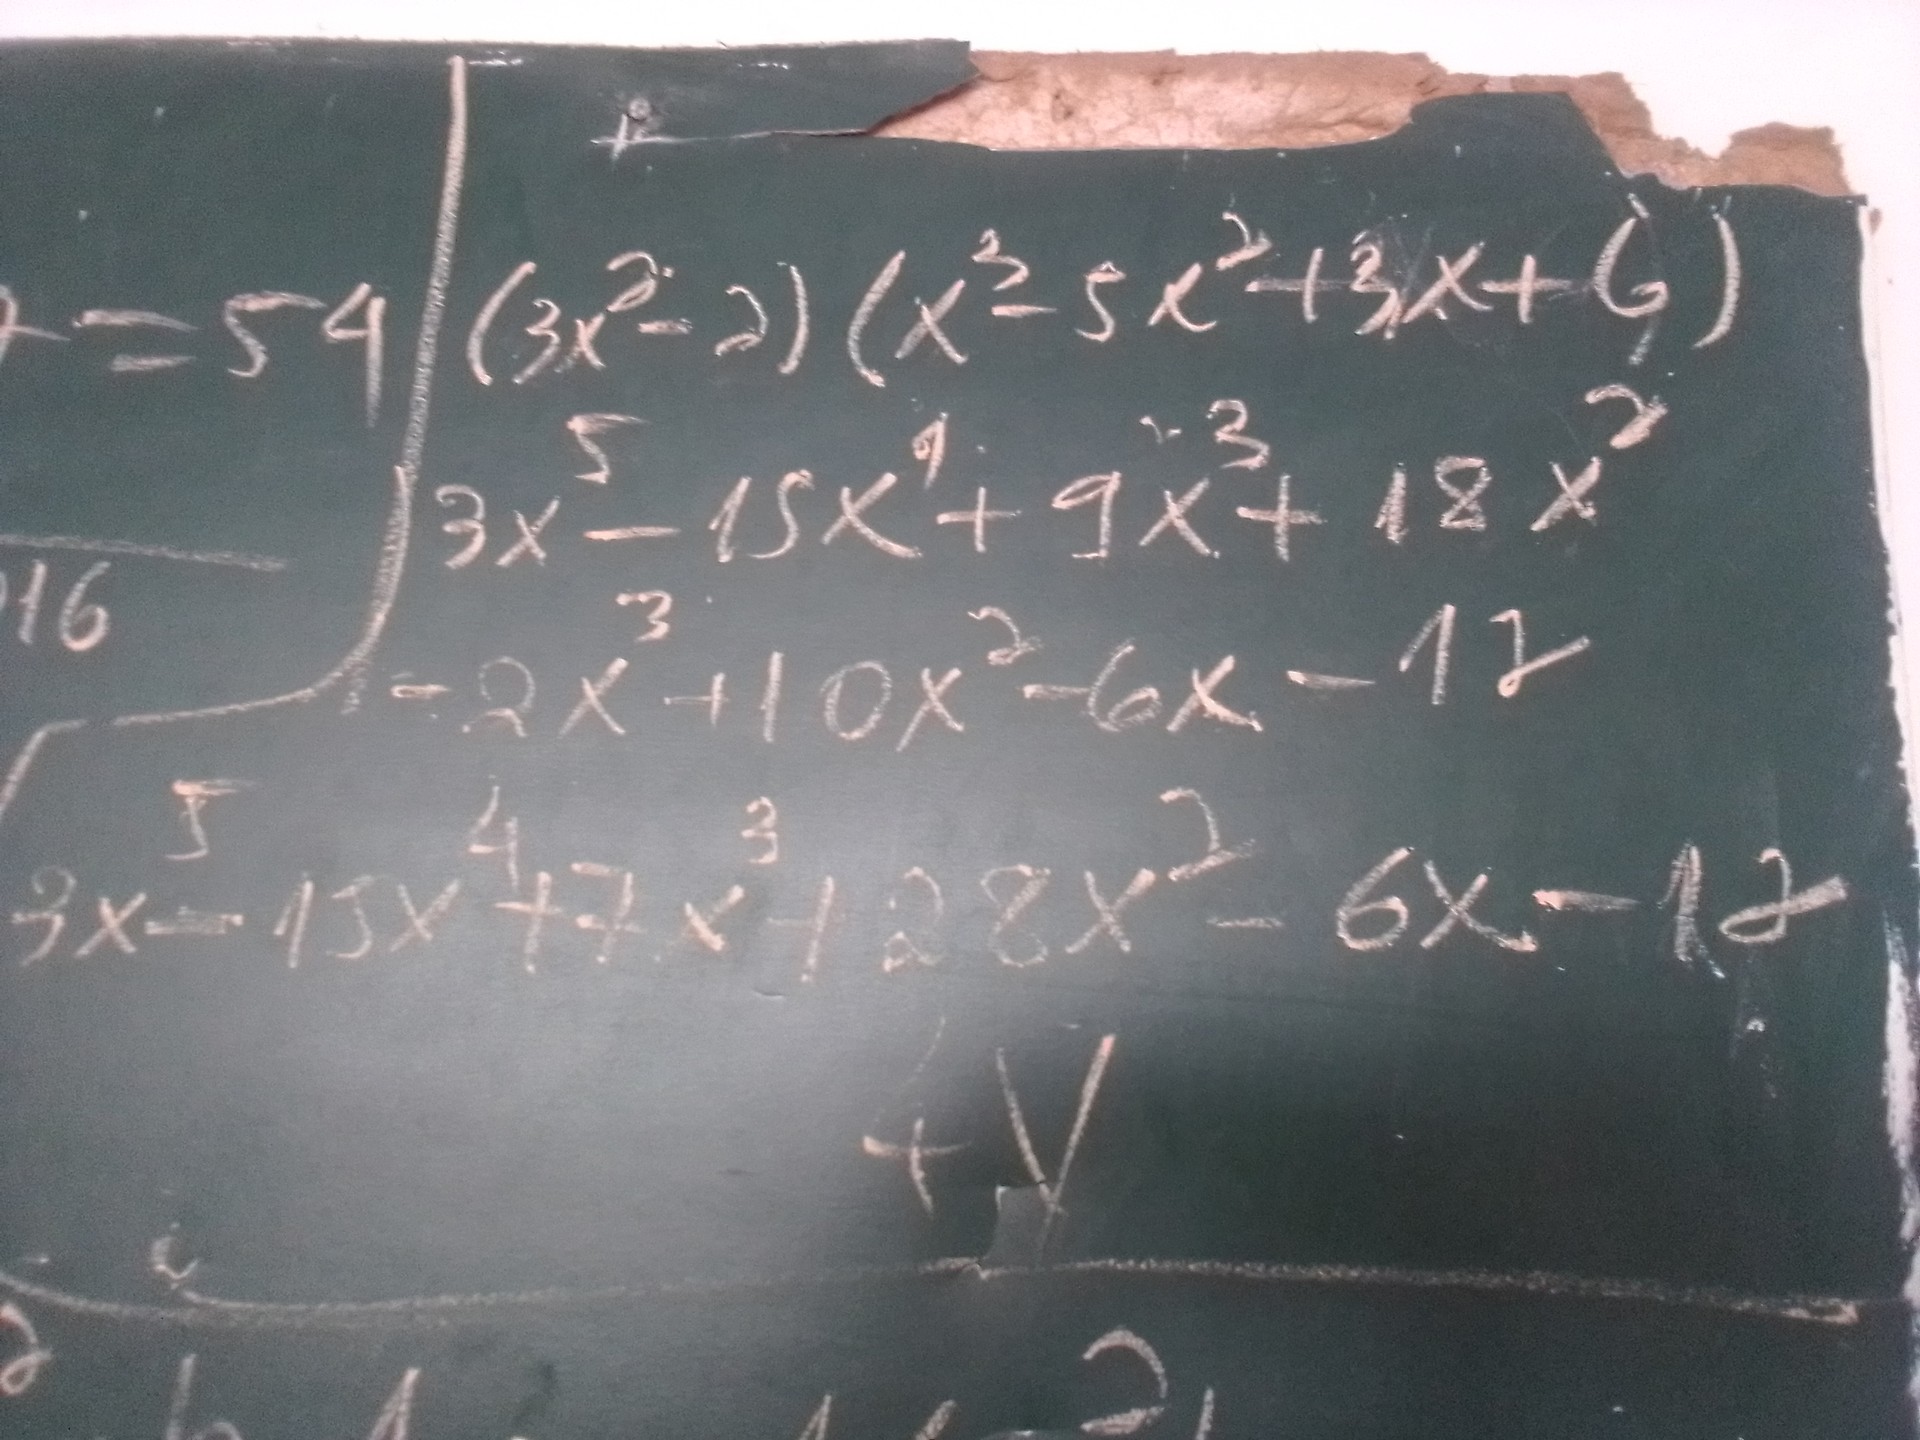 = 54
(3x²-2)(x³-5x²+3x+6)
3x⁵-15x⁴+9x³+18x²
16
-2x³+10x²-6x-12
3x⁵-15x⁴+7x³+28x²-6x-12
+